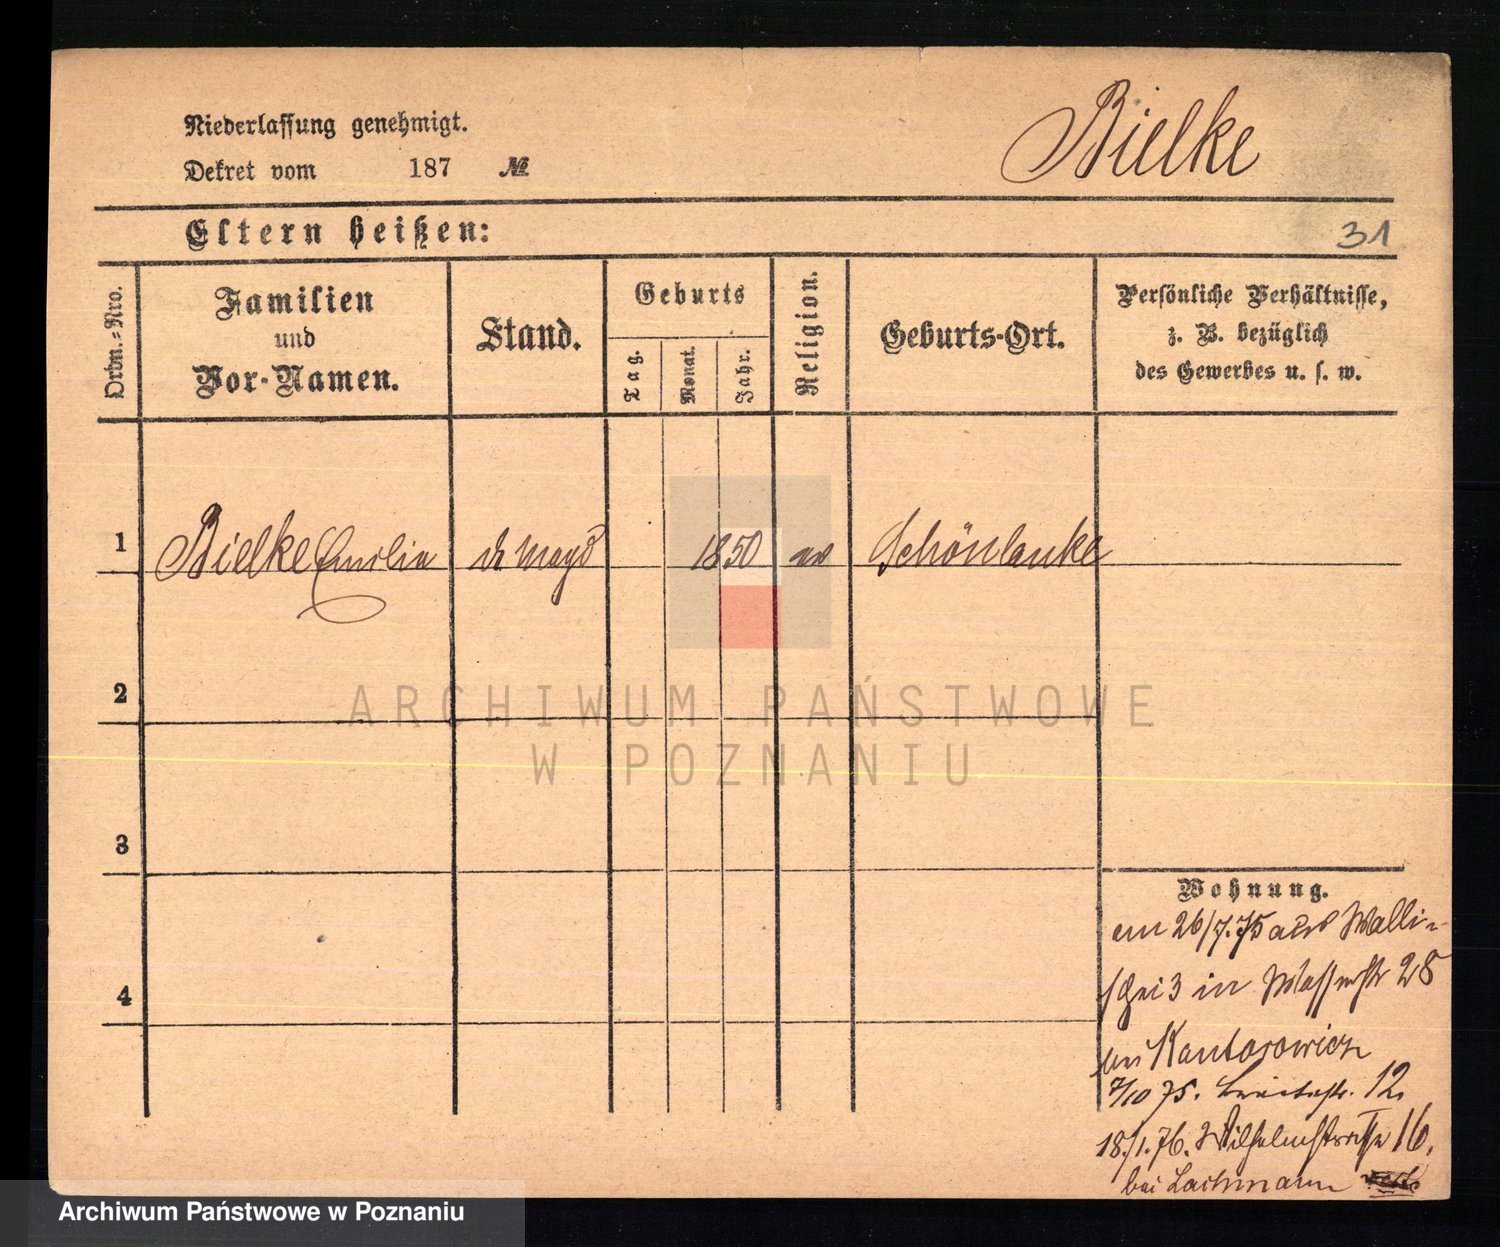 Bielke
Niederlassung genehmigt.
Dekret vom 187 №
Eltern heißen:
31
Ordn.-Nro.
Familien
und
Vor-Namen.
Stand.
Geburts
Tag.
Monat.
Jahr.
Religion.
Geburts-Ort.
Persönliche Verhältnisse,
z. B. bezüglich
des Gewerbes u. s. w.
1 Bielke Emilie d. Magd 1850 ev Schönlanke
2
3
4
Wohnung.
am 26/7.75 aus Walli-
schei 3 in Wasserstr 28
bei Kantorowicz
7/10 75. Breitestr. 12.
18/1.76. Wilhelmstraße 16.
bei Lachmann
ARCHIWUM PAŃSTWOWE
W POZNANIU
Archiwum Państwowe w Poznaniu